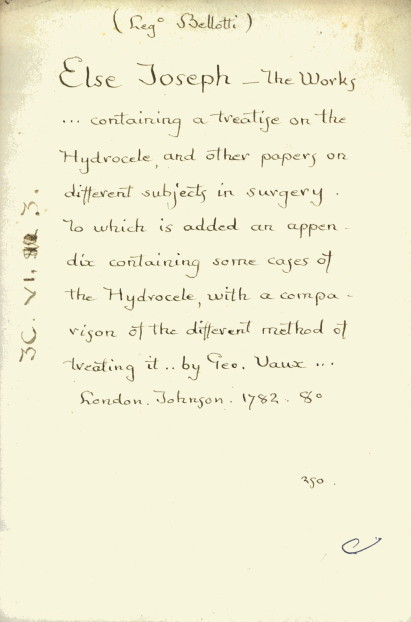 (Leg° Bellotti)
Else Joseph – The Works
... containing a treatise on the
Hydrocele, and other papers on
different subjects in surgery.
To which is added an appen-
dix containing some cases of
the Hydrocele, with a compa-
rison of the different method of
treating it .. by Geo. Vaux ...
London. Johnson. 1782. 8°
350.
3C. VI. 3.